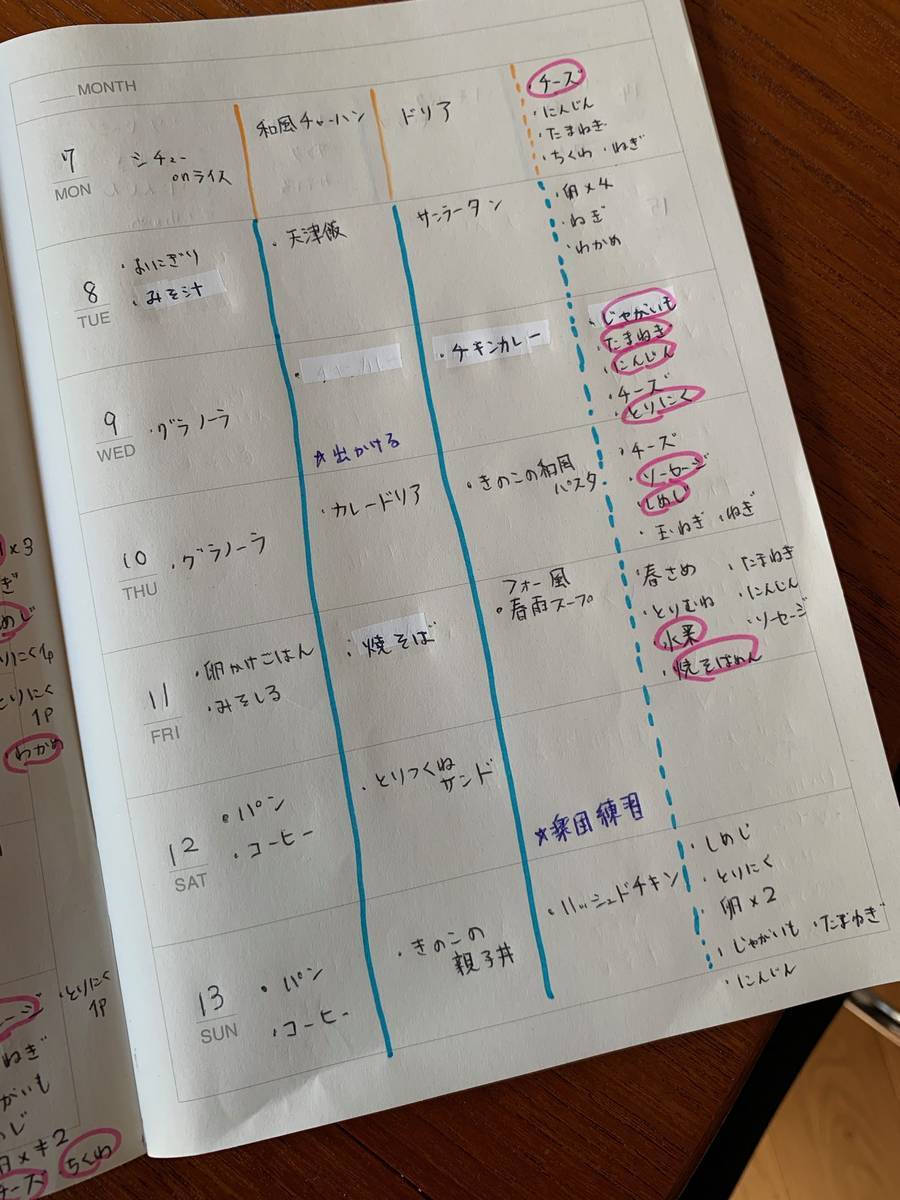 MONTH
7
MON
シチュー
onライス
和風チャーハン
ドリア
・チーズ
・にんじん
・たまねぎ
・ちくわ ・ねぎ
8
TUE
・おにぎり
・みそ汁
・天津飯
サンラータン
・卵×4
・ねぎ
・わかめ
9
WED
・グラノーラ
☆出かける
・チキンカレー
・じゃがいも
・たまねぎ
・にんじん
・チーズ
・とりにく
10
THU
・グラノーラ
・カレードリア
・きのこの和風
パスタ
・チーズ
・ソーセージ
・しめじ
・玉ねぎ ・ねぎ
11
FRI
・卵かけごはん
・みそしる
・焼そば
フォー風
・春雨スープ
・春さめ ・たまねぎ
・とりむね ・にんじん
・水菜 ・ソーセージ
・焼そばめん
12
SAT
・パン
・コーヒー
・とりつくね
サンド
☆楽団練習
13
SUN
・パン
・コーヒー
・きのこの
親子丼
・ハッシュドチキン
・しめじ
・とりにく
・卵×2
・じゃがいも ・たまねぎ
・にんじん
×3
ぎ
めじ
りにく1p
とりにく
1P
・わかめ
・とりにく
1P
ージ
ねぎ
がいも
じ
×2
チーズ ちくわ